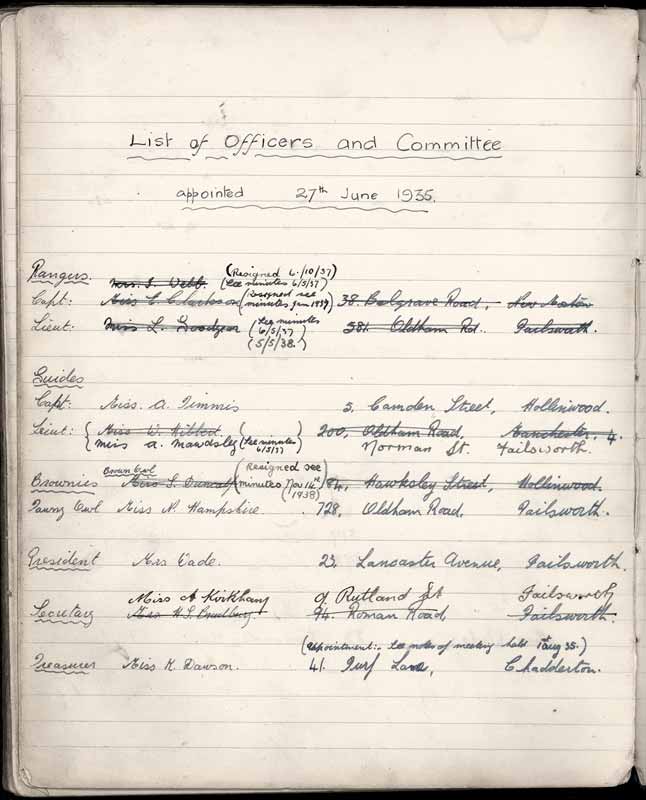 List of Officers and Committee
appointed 27th June 1935.
Rangers. Mrs. I. Webb. (Resigned 6/10/37) (See minutes 6/5/37)
Capt: Miss E. Clarkson (Resigned see minutes Jan 1939) 38. Belgrave Road, New Moston
Lieut: Miss L. Goodyear (See minutes 6/5/37) (5/5/38.) 381. Oldham Rd. Failsworth.
Guides
Capt: Miss. A. Timmis 5, Camden Street, Hollinwood.
Lieut: Miss W. Hibbert. 200, Oldham Road, Manchester, 4.
miss a. mawdsley (See minutes 6/5/37) Norman St. Failsworth.
Brown Owl
Brownies Miss S. Duncalf (Resigned see minutes, Nov 14th 1938) 84, Hawksley Street, Hollinwood.
Tawny Owl Miss N. Hampshire. 728, Oldham Road, Failsworth.
President Mrs Eade. 25, Lancaster Avenue, Failsworth.
Miss A Kirkham 9 Rutland St Failsworth
Secretary Miss H.S. Bradbury. 94. Roman Road Failsworth.
(appointment:- See notes of meeting held 1st aug 35.)
Treasurer Miss K. Dawson. 41. Turf Lane, Chadderton.